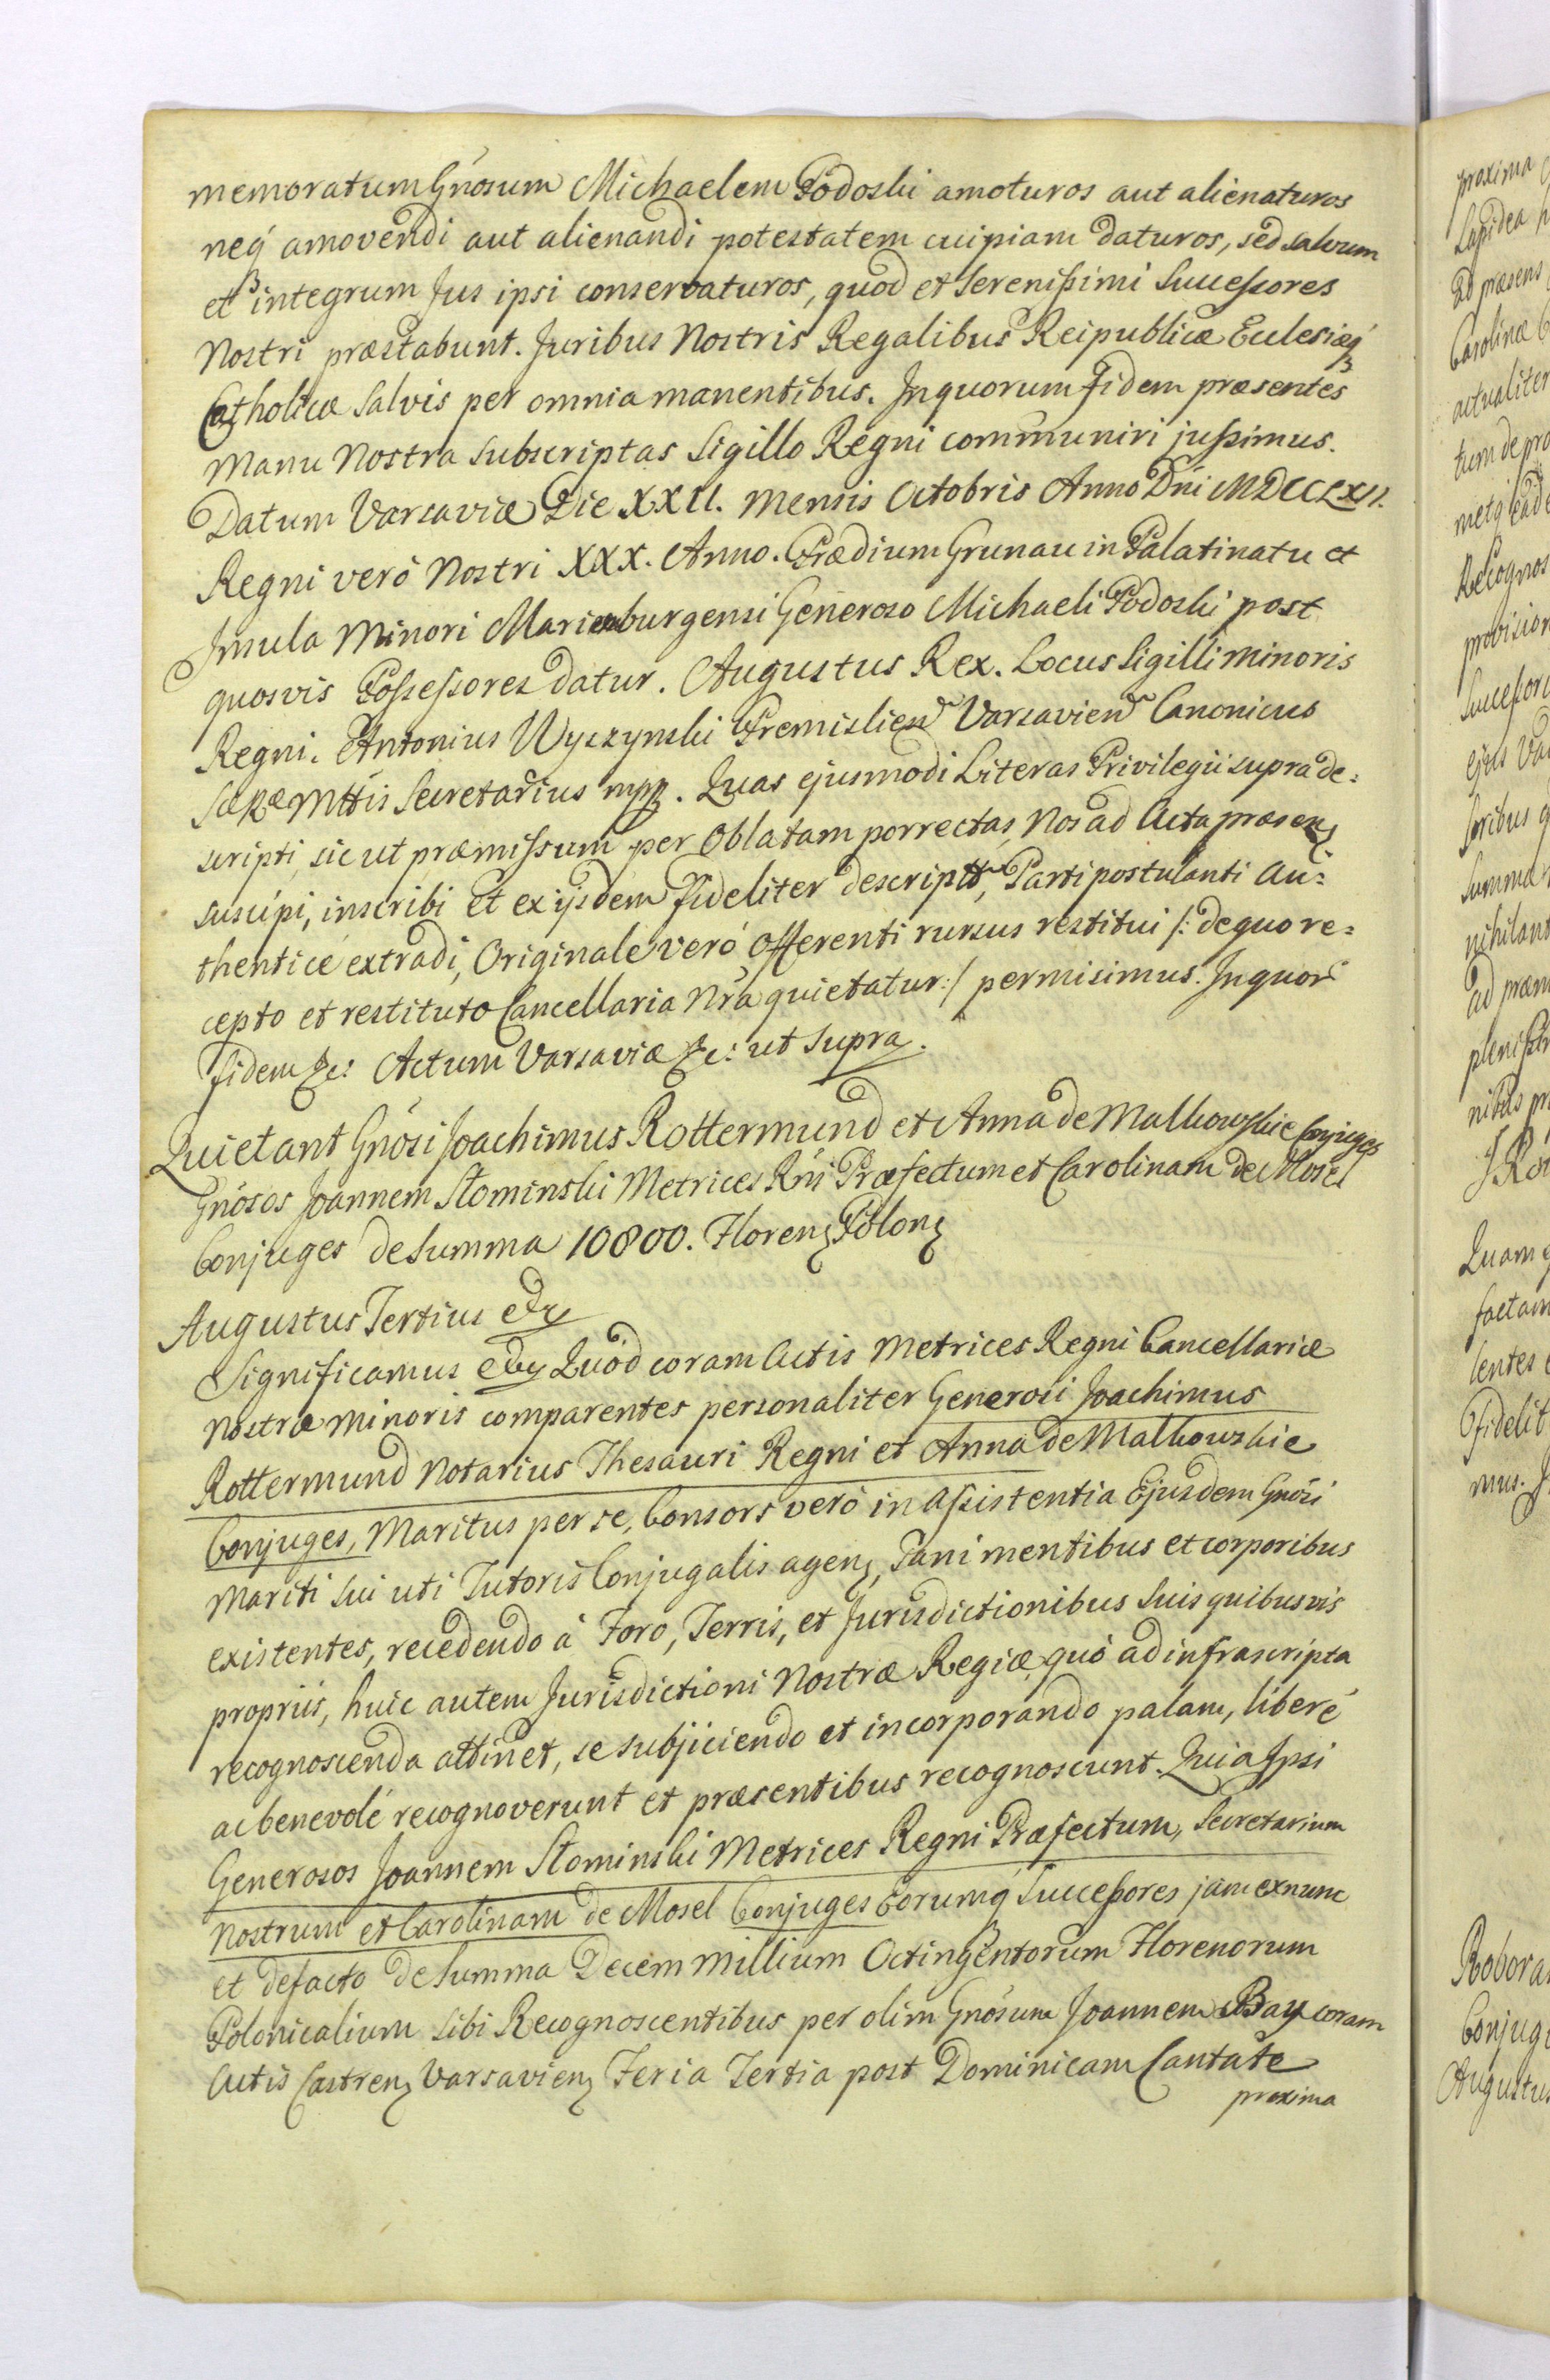 memoratum Gnosum Michaelem Podoski amoturos aut alienaturos
neq́ amovendi aut alienandi potestatem cuipiam daturos, sed salvum
et integrum Jus ipsi conservaturos, quod et Serenißimi Succeßores
Nostri præstabunt. Juribus Nostris Regalibus Reipublicæ Eclesiæq́
Catholicæ Salvis per omnia manentibus. In quorum Fidem præsentes
Manu Nostra Subscriptas Sigillo Regni communiri jußimus.
Datum Varsaviæ Die XXII. Mensis Octobris Anno Dni MDCCLXII.
Regni verò Nostri XXX. Anno. Prædium Grunau in Palatinatu et
Insula Minori Marienburgensi Generoso Michaeli Podoski post
quosvis Poßeßores datur. Augustus Rex. Locus Sigilli Minoris
Regni. Antonius Wyszynski Premislien Varsavien Canonicus
Sæ Ræ Mttis Secretarius mpp. Quas ejusmodi Literas Privilegii suprade:
scripti, sic ut præmißum per Oblatam porrectas, Nos ad Acta præsenẓ
suscipi, inscribi et ex ijsdem fideliter descriptt, Parti postulanti Au:
thenticè extradi, Originale verò Offerenti rursus restitui /: de quo re:
cepto et restituto Cancellaria Nra quietatur :/ permisimus. In quor
fidem &c: Actum Varsaviæ &c: ut Supra.
Quietant Gnosi Joachimus Rottermund et Anna de Malkowskie Conjuges
Gnosos Joannem Słominski Metrices Rni Præfectum et Carolinam de Mosel
Conjuges de Summa 10800. Florenẓ Polonẓ
Augustus Tertius &c
Significamus &c Quòd coram Actis Metrices Regni Cancellariæ
Nostræ Minoris comparentes personaliter Generosi Joachimus
Rottermund Notarius Thesauri Regni et Anna de Malkowskie
Conjuges, Maritus per se, Consors verò in Aßistentia Ejusdem Gnosi
Mariti sui uti Tutoris Conjugalis agenẓ, Sani mentibus et corporibus
existentes, recedendo à Foro, Terris, et Jurisdictionibus Suis quibusvis
propriis, huic autem Jurisdictioni Nostræ Regiæ, quò ad infrascripta
recognoscenda attinet, se subjiciendo et incorporando palam, liberè
ac benevolè recognoverunt et præsentibus recognoscunt. Quia Ipsi
Generosos Joannem Słominski Metrices Regni Præfectum, Secretarium
Nostrum et Carolinam de Mosel Conjuges Eorumq́ Succeßores jam ex nunc
et defacto de Summa Decem Millium Octingentorum Florenorum
Polonicalium Sibi Recognoscentibus per olim Gnosum Joannem Bay coram
Actis Castrenẓ Varsavienẓ Feria Tertia post Dominicam Cantate
proxima
proxima
Lapidea
ad præsens
Carolinæ
actualiter
tum de pro
metq́ eade
Recognos
provision
Succeßor
ejus Va
Summa
nihilant
ad præm
Quam
factam
lentes
Fidelit
mus.
Robora
Conjug
Augustus